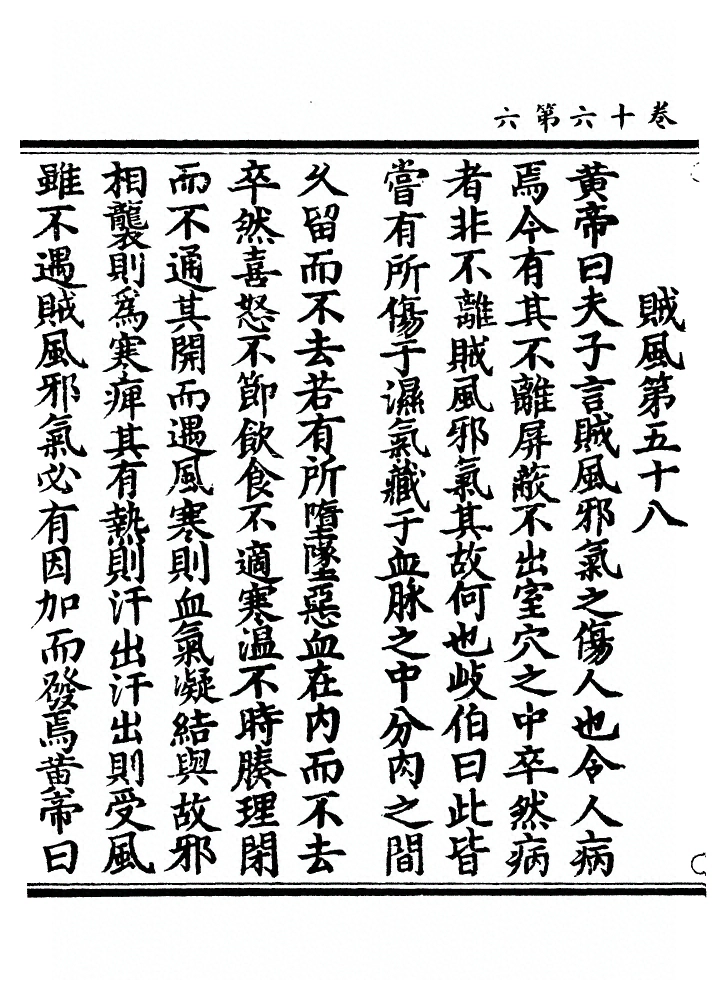 卷十六第六
賊風第五十八
黃帝曰夫子言賊風邪氣之傷人也令人病
焉今有其不離屏蔽不出室穴之中卒然病
者非不離賊風邪氣其故何也歧伯曰此皆
嘗有所傷于濕氣藏于血脉之中分肉之間
乆留而不去若有所墮墜惡血在内而不去
卒然喜怒不節飲食不適寒温不時腠理閉
而不通其開而遇風寒則血氣凝結與故邪
相襲則為寒痺其有熱則汗出汗出則受風
雖不遇賊風邪氣必有因加而發焉黃帝曰